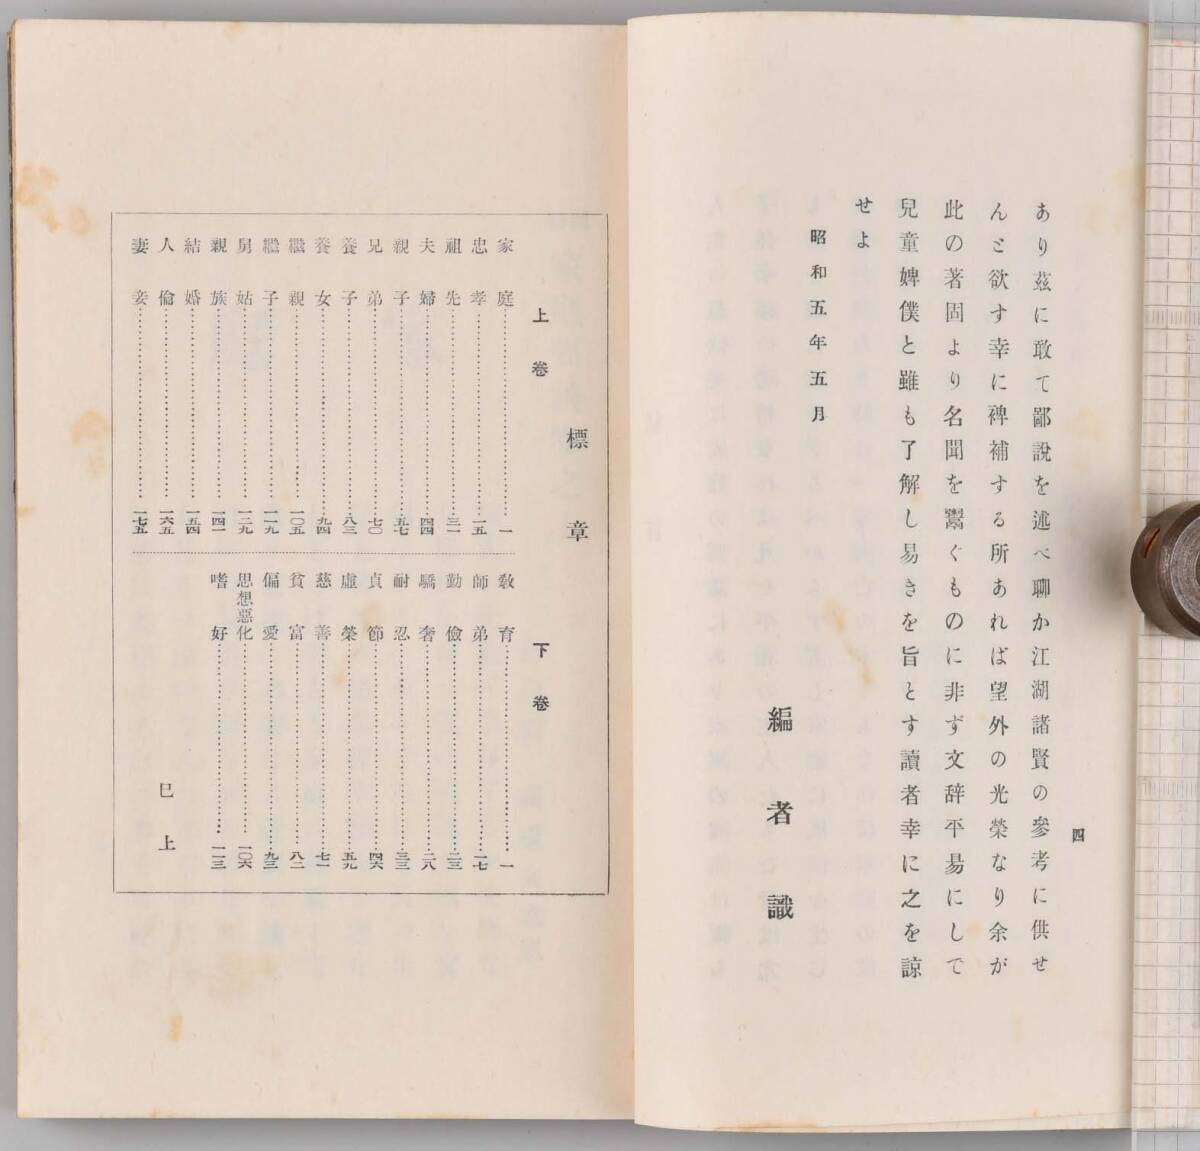 四
あり茲に敢て鄙說を述べ聊か江湖諸賢の參考に供せ
んと欲す幸に裨補する所あれば望外の光榮なり余が
此の著固より名聞を鬻ぐものに非ず文辞平易にして
兒童婢僕と雖も了解し易きを旨とす讀者幸に之を諒
せよ
昭和五年五月
編者識
標章
上卷
家庭……一
忠孝……一五
祖先……三一
夫婦……四四
親子……五七
兄弟……七〇
養子……八三
養女……九四
繼親……一〇五
繼子……一一九
舅姑……一二九
親族……一四一
結婚……一五四
人倫……一六五
妻妾……一七五
下卷
敎育……一
師弟……一七
勤儉……二三
驕奢……二八
耐忍……三三
貞節……四六
虛榮……五九
慈善……七一
貧富……八二
偏愛……九三
思想惡化……一〇六
嗜好……一一三
巳上